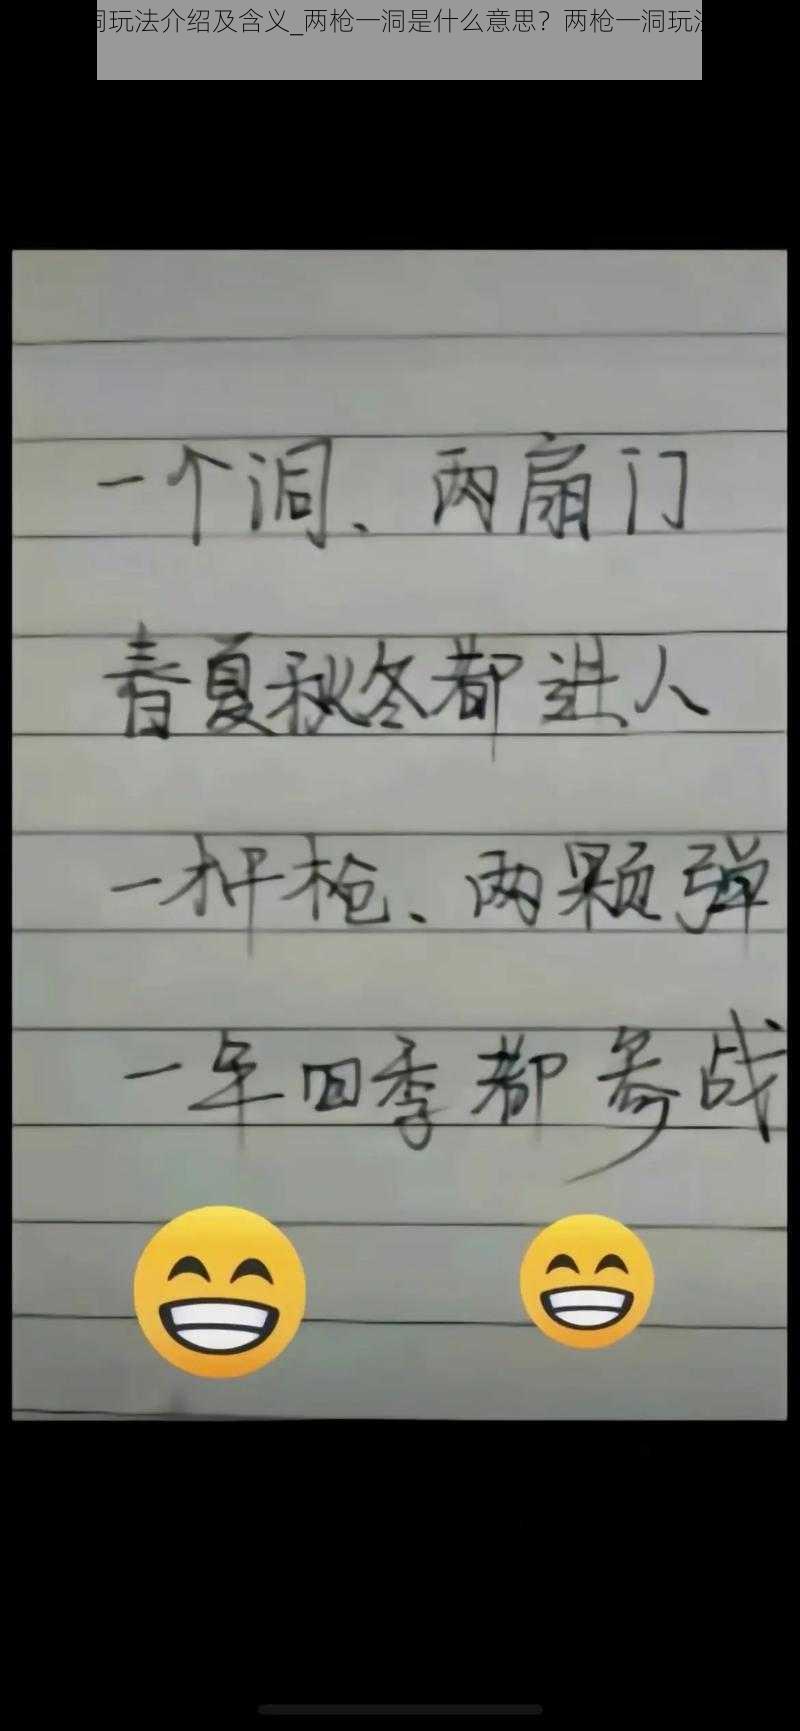 洞玩法介绍及含义_两枪一洞是什么意思？两枪一洞玩法
一个洞、两扇门
春夏秋冬都进人
一杆枪、两颗弹
一年四季都参战